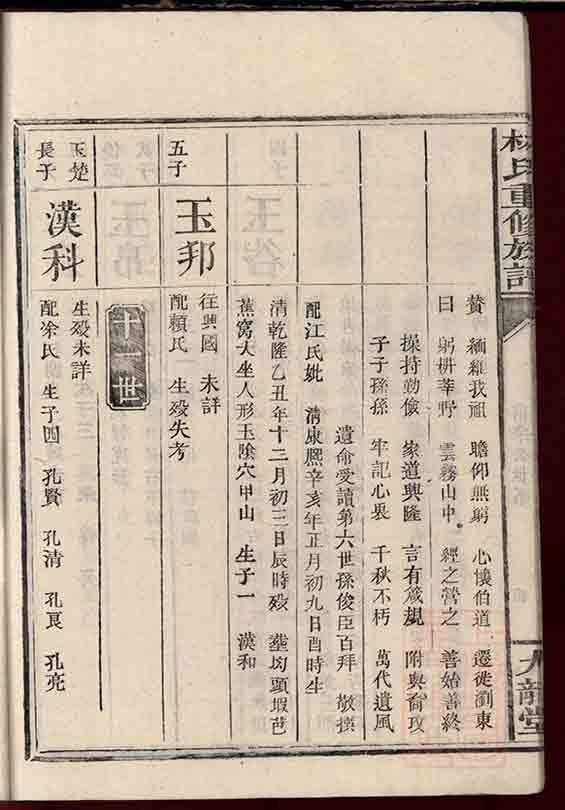 林氏重修族譜
九龍堂
贊 緬維我祖 瞻仰無窮 心懷伯道 遷徙瀏東
曰 躬耕莘野 雲霧山中 經之營之 善始善終
操持勤儉 家道興隆 言有箴規 附與爾攻
子子孫孫 牢記心裏 千秋不朽 萬代遺風
遺命愛讀第六世孫俊臣百拜 敬撰
配江氏妣 清康熙辛亥年正月初九日酉時生
清乾隆乙丑年十二月初三日辰時歿 塟均頭塅芭
蕉窩大坐人形玉陰穴甲山 生子一 漢和
五子
玉邦
往興國 未詳
配賴氏 生歿失考
十一世
玉楚
長子
漢科
生歿未詳
配涂氏 生子四 孔賢 孔清 孔良 孔亮